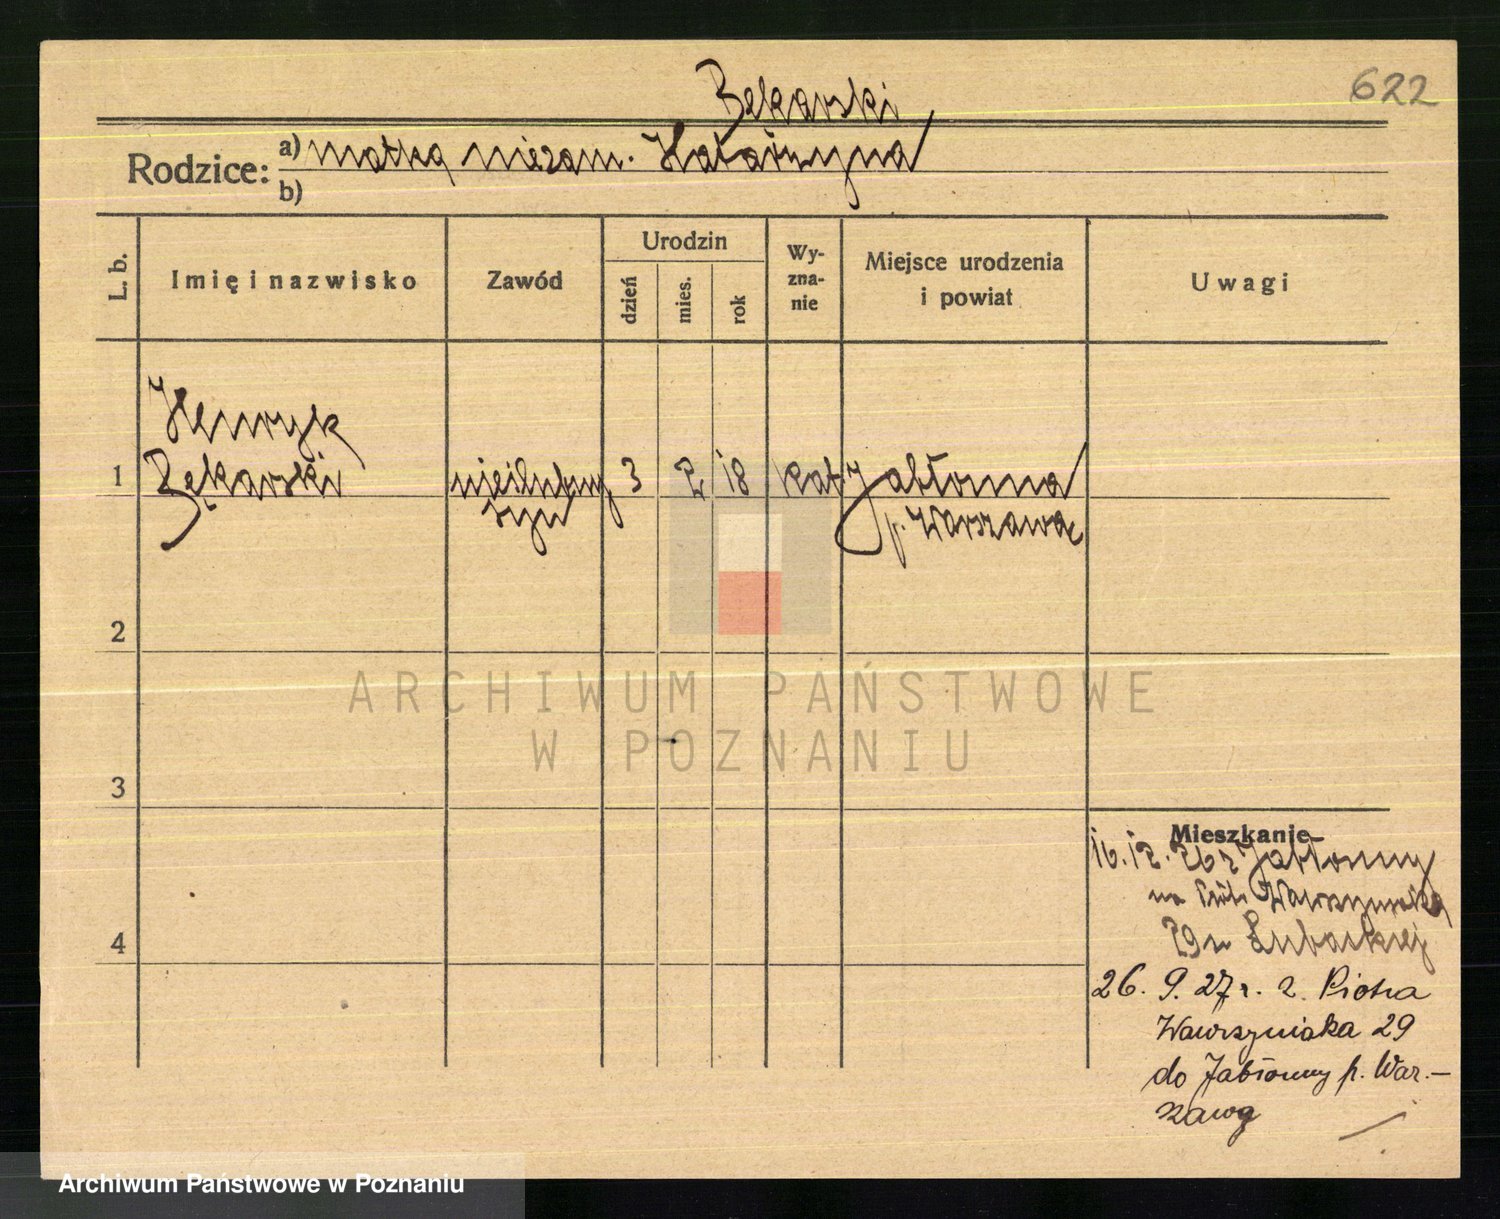 622
Bękarski
Rodzice: a) matka niezam. Katarzyna
b)
L. b.
Imię i nazwisko
Zawód
Urodzin
dzień
mies.
rok
Wy-
zna-
nie
Miejsce urodzenia
i powiat
Uwagi
Henryk
1 Bękarski 3 2 18 kat Jabłonna
syn p. Warszawa
2
ARCHIWUM PAŃSTWOWE
W POZNANIU
3
Mieszkanie
16. 12. 26 z Jabłonny
Wawrzyniaka
29
4
26. 9. 27 r. z. Piotra
Wawrzyniaka 29
do Jabłonny p. War-
szawą
Archiwum Państwowe w Poznaniu